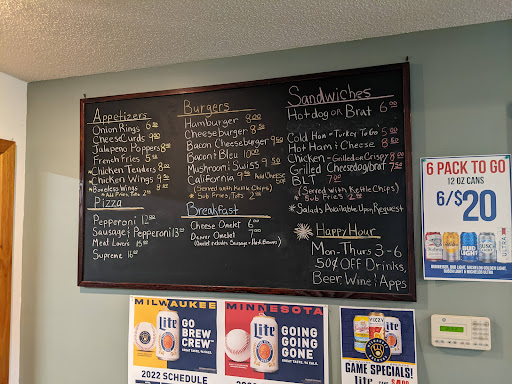 Appetizers
Onion Rings 6.50
Cheese Curds 9.00
Jalapeno Poppers 8.00
French Fries 5.50
*Chicken Tenders 8.00
*Chicken Wings 9.50
*Boneless Wings 8.00
*Add Fries, Tots 2.00
Pizza
Pepperoni 12.00
Sausage & Pepperoni 13.00
Meat Lovers 15.00
Supreme 16.00
Burgers
Hamburger 8.00
Cheeseburger 8.50
Bacon Cheeseburger 9.50
Bacon & Bleu 10.00
Mushroom & Swiss 9.50
California 9.00
Add Cheese 50¢
(Served with Kettle Chips)
* Sub Fries, Tots 2.00
Breakfast
Cheese Omelet 6.00
Denver Omelet 7.00
(Omelet includes Sausage & Hash Browns)
Sandwiches
Hotdog or Brat 6.00
Cold Ham & Turkey To Go 5.00
Hot Ham & Cheese 8.00
Chicken - Grilled or Crispy 8.00
Grilled Cheesedog/brat 7.50
BLT 7.00
(Served with Kettle Chips)
Sub Fries 2.00
*Salads Available Upon Request
Happy Hour
Mon-Thurs 3-6
50¢ Off Drinks,
Beer, Wine & Apps
6 PACK TO GO
12 OZ CANS
6/$20
BUDWEISER, BUD LIGHT, MICHELOB GOLDEN LIGHT,
BUSCH LIGHT & MICHELOB ULTRA
MILWAUKEE
Lite
GO
BREW
CREW
2022 SCHEDULE
MINNESOTA
Lite
GOING
GOING
GONE
2022
GAME SPECIALS!
Lite